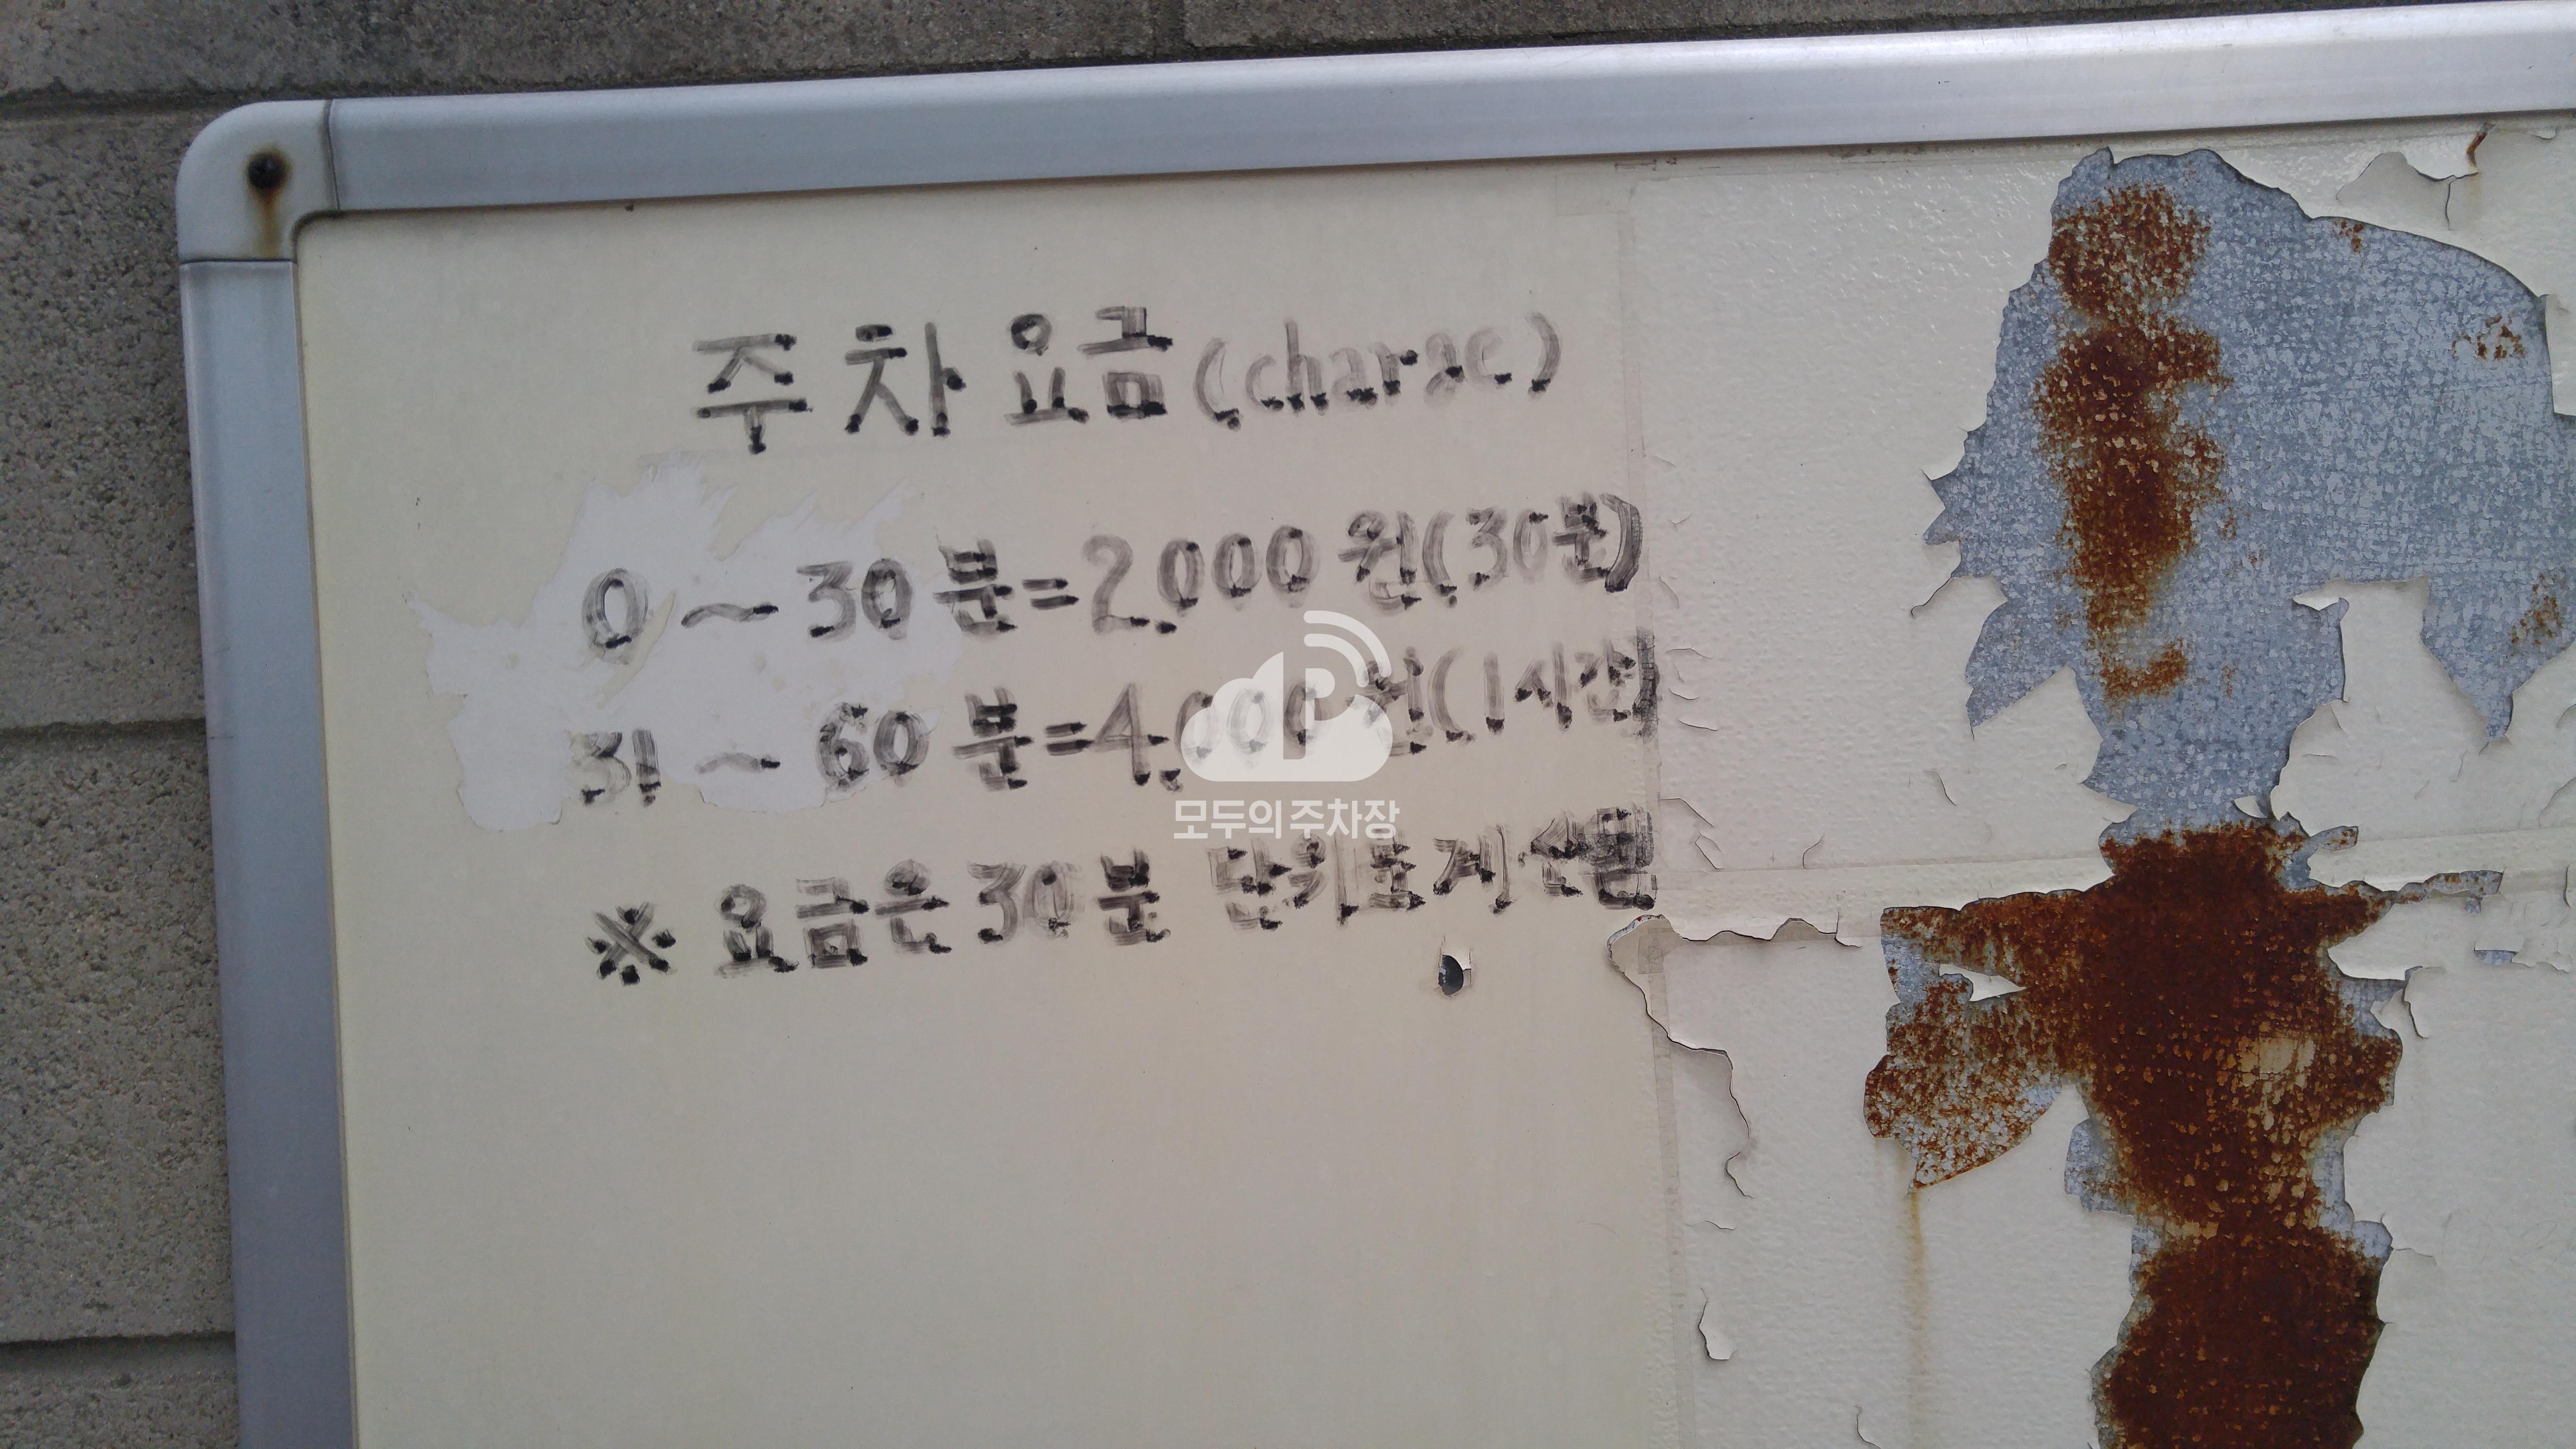 주차요금(charge)
0~30분=2,000원(30분)
31~60분=4,000원(1시간)
※ 요금은 30분 단위로 계산됨
모두의주차장